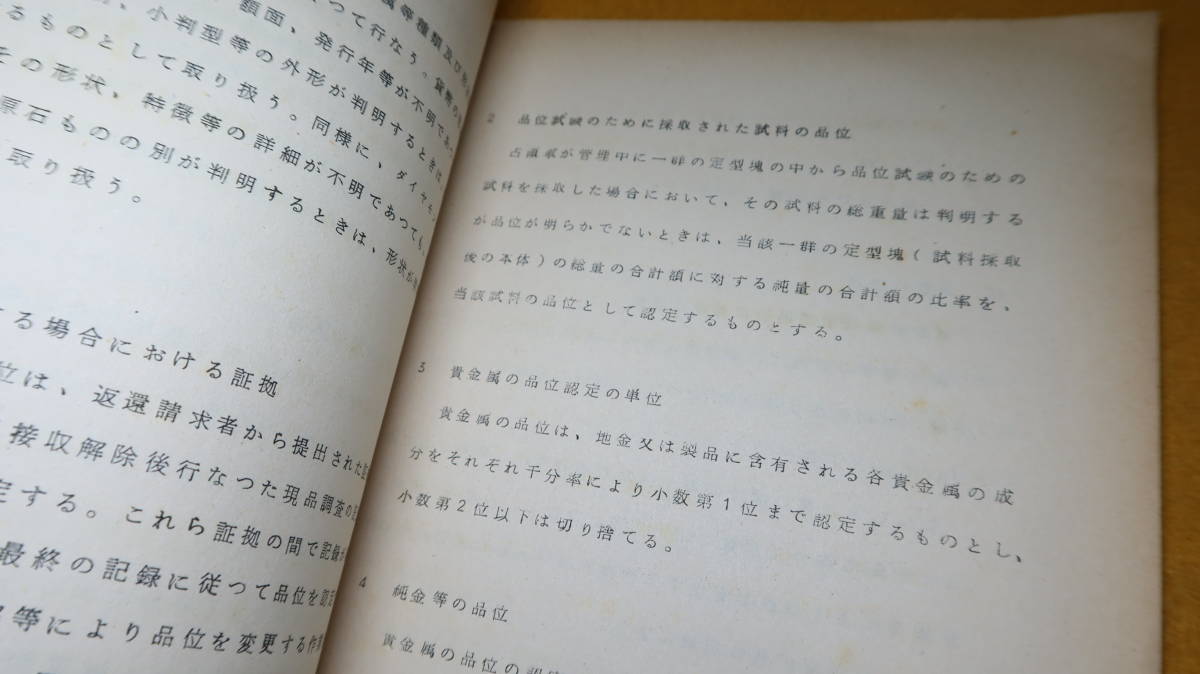 属等種類及び
つて行なう。貨幣の
額面、発行年等が不明であ
、小判型等の外形が判明するときは、
るものとして取り扱う。同様に、ダイヤモ
その形状、特徴等の詳細が不明であつても、
原石ものの別が判明するときは、形状が
取り扱う。
する場合における証拠
位は、返還請求者から提出された
接収解除後行なつた現品調査の
定する。これら証拠の間で記録が
最終の記録に従つて品位を認定
等により品位を変更する作業
2 品位試験のために採取された試料の品位
占領軍が管理中に一群の定型塊の中から品位試験のための
試料を採取した場合において、その試料の総重量は判明する
が品位が明らかでないときは、当該一群の定型塊(試料採取
後の本体)の総量の合計額に対する純量の合計額の比率を、
当該試料の品位として認定するものとする。
3 貴金属の品位認定の単位
貴金属の品位は、地金又は製品に含有される各貴金属の成
分をそれぞれ千分率により小数第1位まで認定するものとし、
小数第2位以下は切り捨てる。
4 純金等の品位
貴金属の品位の認定